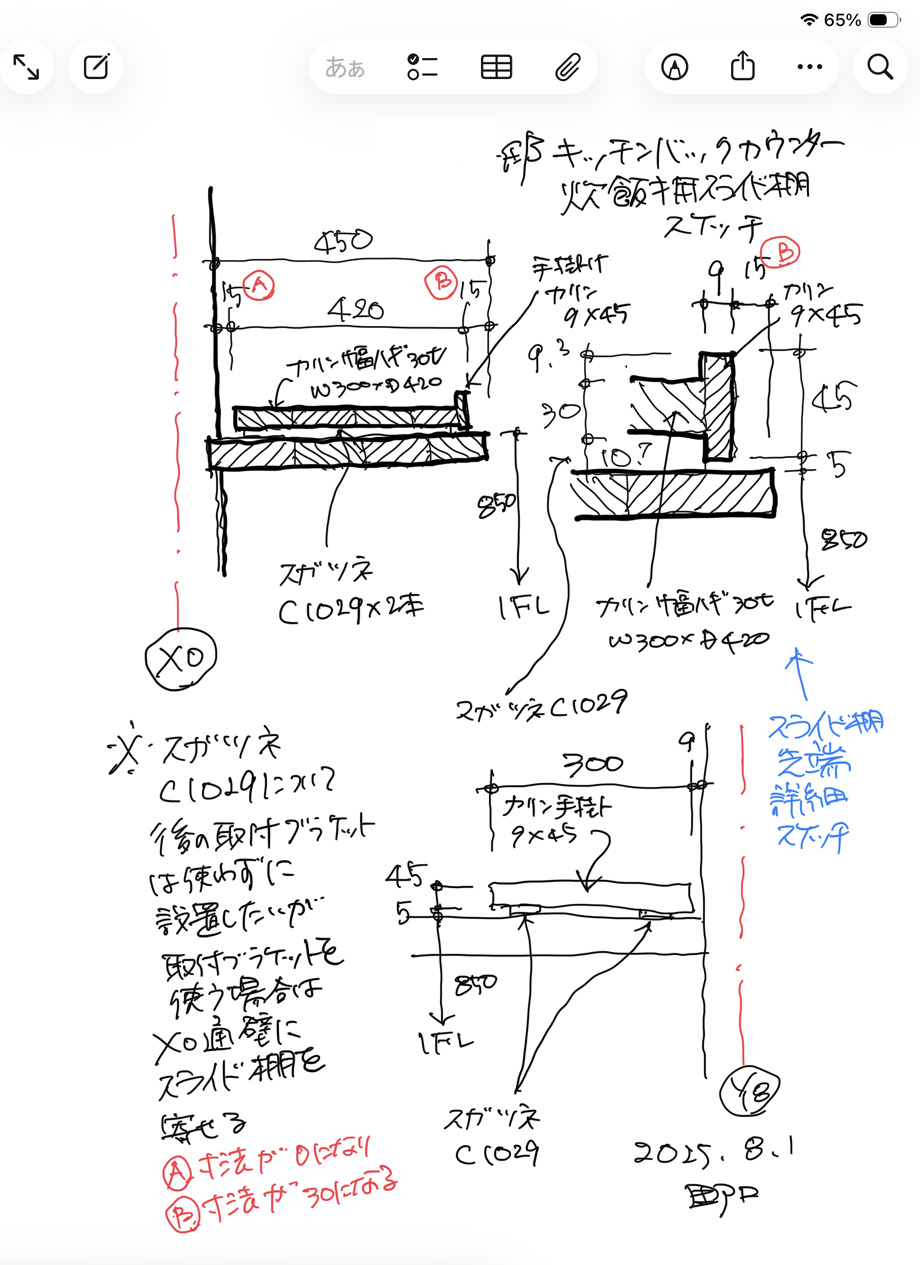 65%
あぁ
邸 キッチンバックカウンター
炊飯キ用スライド棚
スケッチ
450
15 A
B 15
420
手掛け
カリン
9×45
カリン幅ハギ30t
W300×D420
850
1FL
スガツネ
C1029×2本
X0
9
15
B
カリン
9×45
9.?
30
10.?
45
5
850
1FL
カリン幅ハギ30t
W300×D420
スガツネC1029
スライド棚
先端
詳細
スケッチ
※スガツネ
C1029について
後の取付ブラケット
は使わずに
設置したいが
取付ブラケットを
使う場合は
X0通壁に
スライド棚を
寄せる
A 寸法が0になり
B 寸法が30になる
300
9
カリン手掛け
9×45
45
5
850
1FL
スガツネ
C1029
Y8
2025.8.1